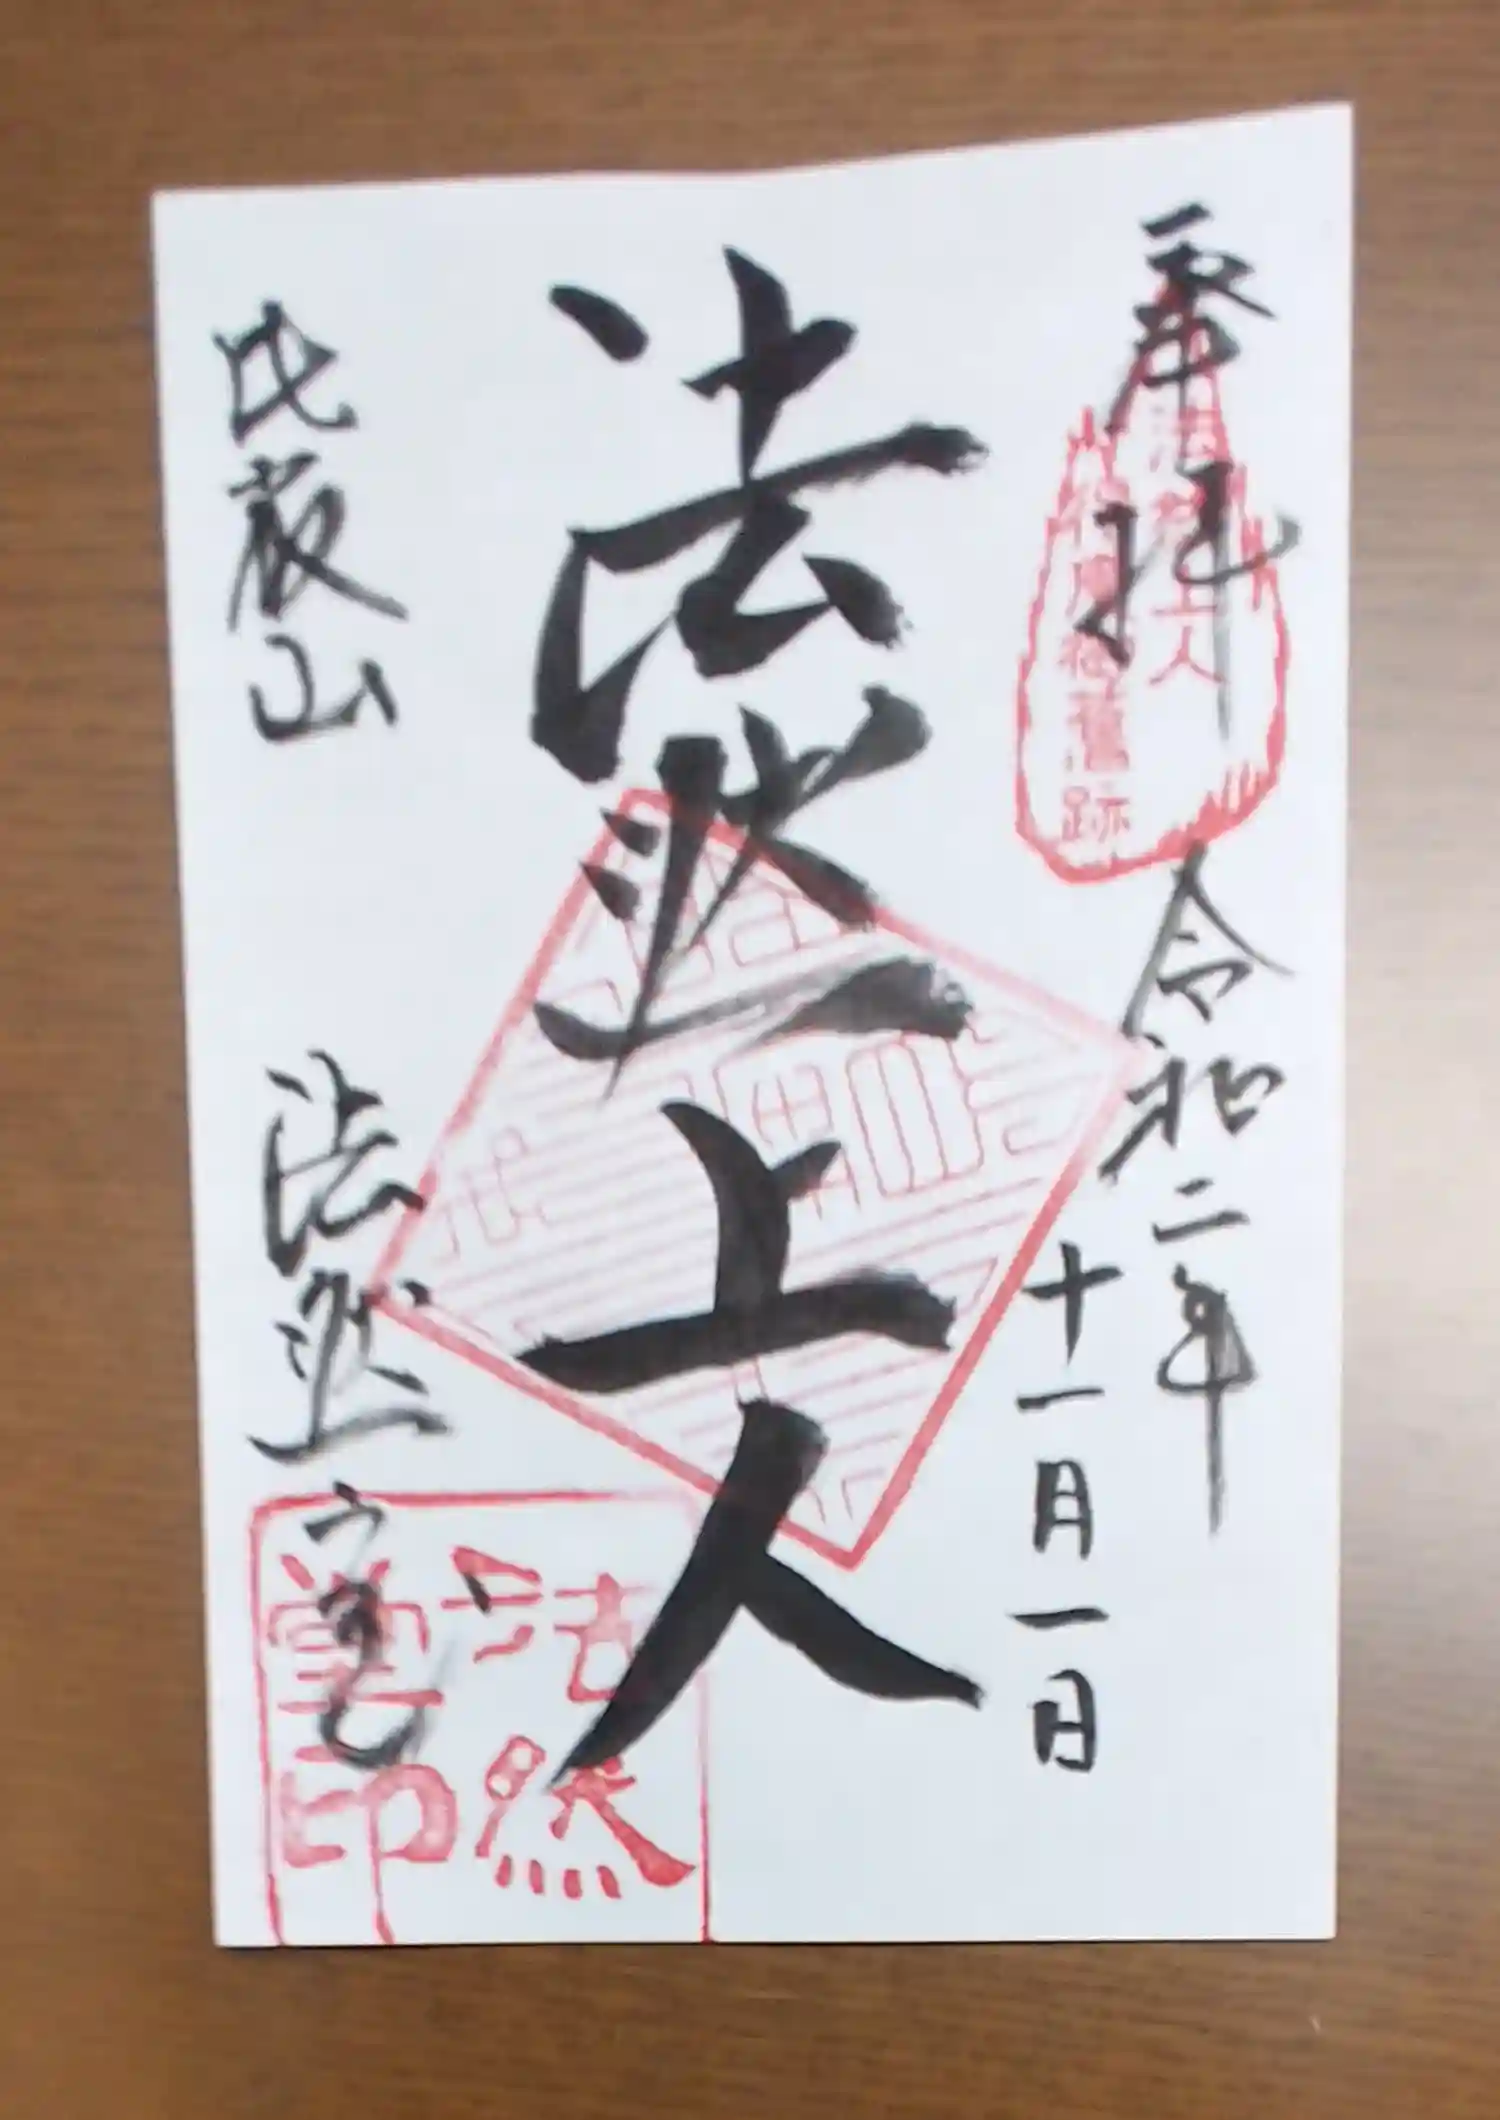 奉拝
法然上人
得度御旧跡
令和二年
十一月一日
法然上人
比叡山
法然堂
法然
堂印